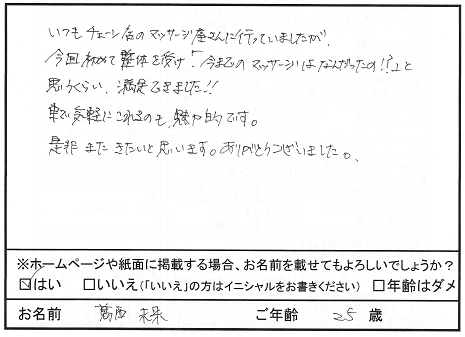 いつもチェーン店のマッサージ屋さんに行っていましたが、
今回初めて整体を受け「今までのマッサージはなんだったの!?」と
思うくらい、満足できました!!
車で気軽にこれるのも、魅力的です。
是非またきたいと思います。ありがとうございました。
※ホームページや紙面に掲載する場合、お名前を載せてもよろしいでしょうか?
☑はい □いいえ(「いいえ」の方はイニシャルをお書きください) □年齢はダメ
お名前 葛西 未来 ご年齢 25 歳